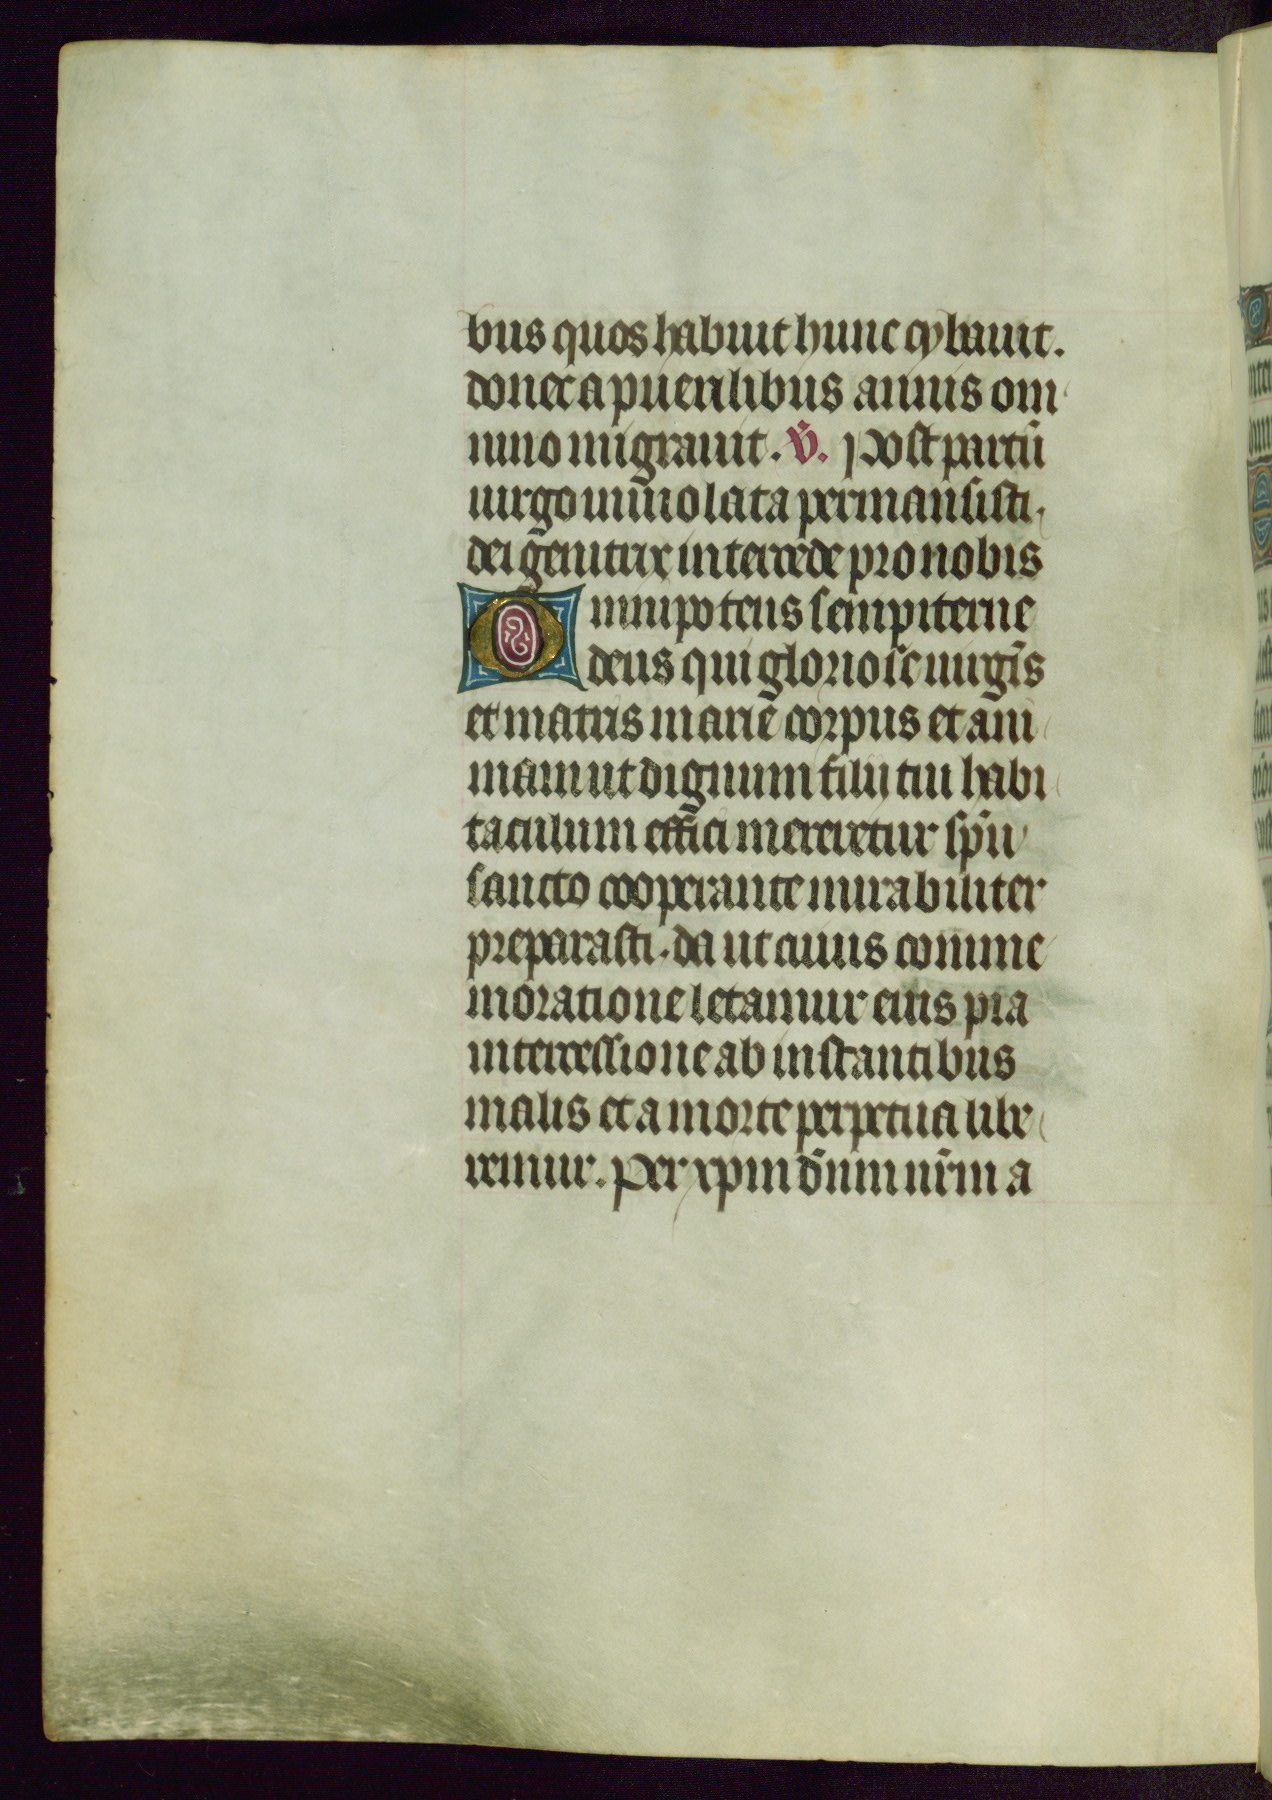 bus quos habuit hunc cybauit.
donec a puerilibus annis om
nino migrauit. V̄. Post partū
uirgo inuiolata permansisti.
dei genitrix intercede pro nobis
Omnipotens sempiterne
deus qui gloriose uirgīs
et matris marie corpus et ani
mam ut dignum filij tui habi
taculum effici mereretur sp̄u
sancto cooperante mirabiliter
preparasti. da ut cuius comme
moratione letamur eius pia
intercessione ab instantibus
malis et a morte perpetua libe
remur. Per xpm dn̄m nr̄m a